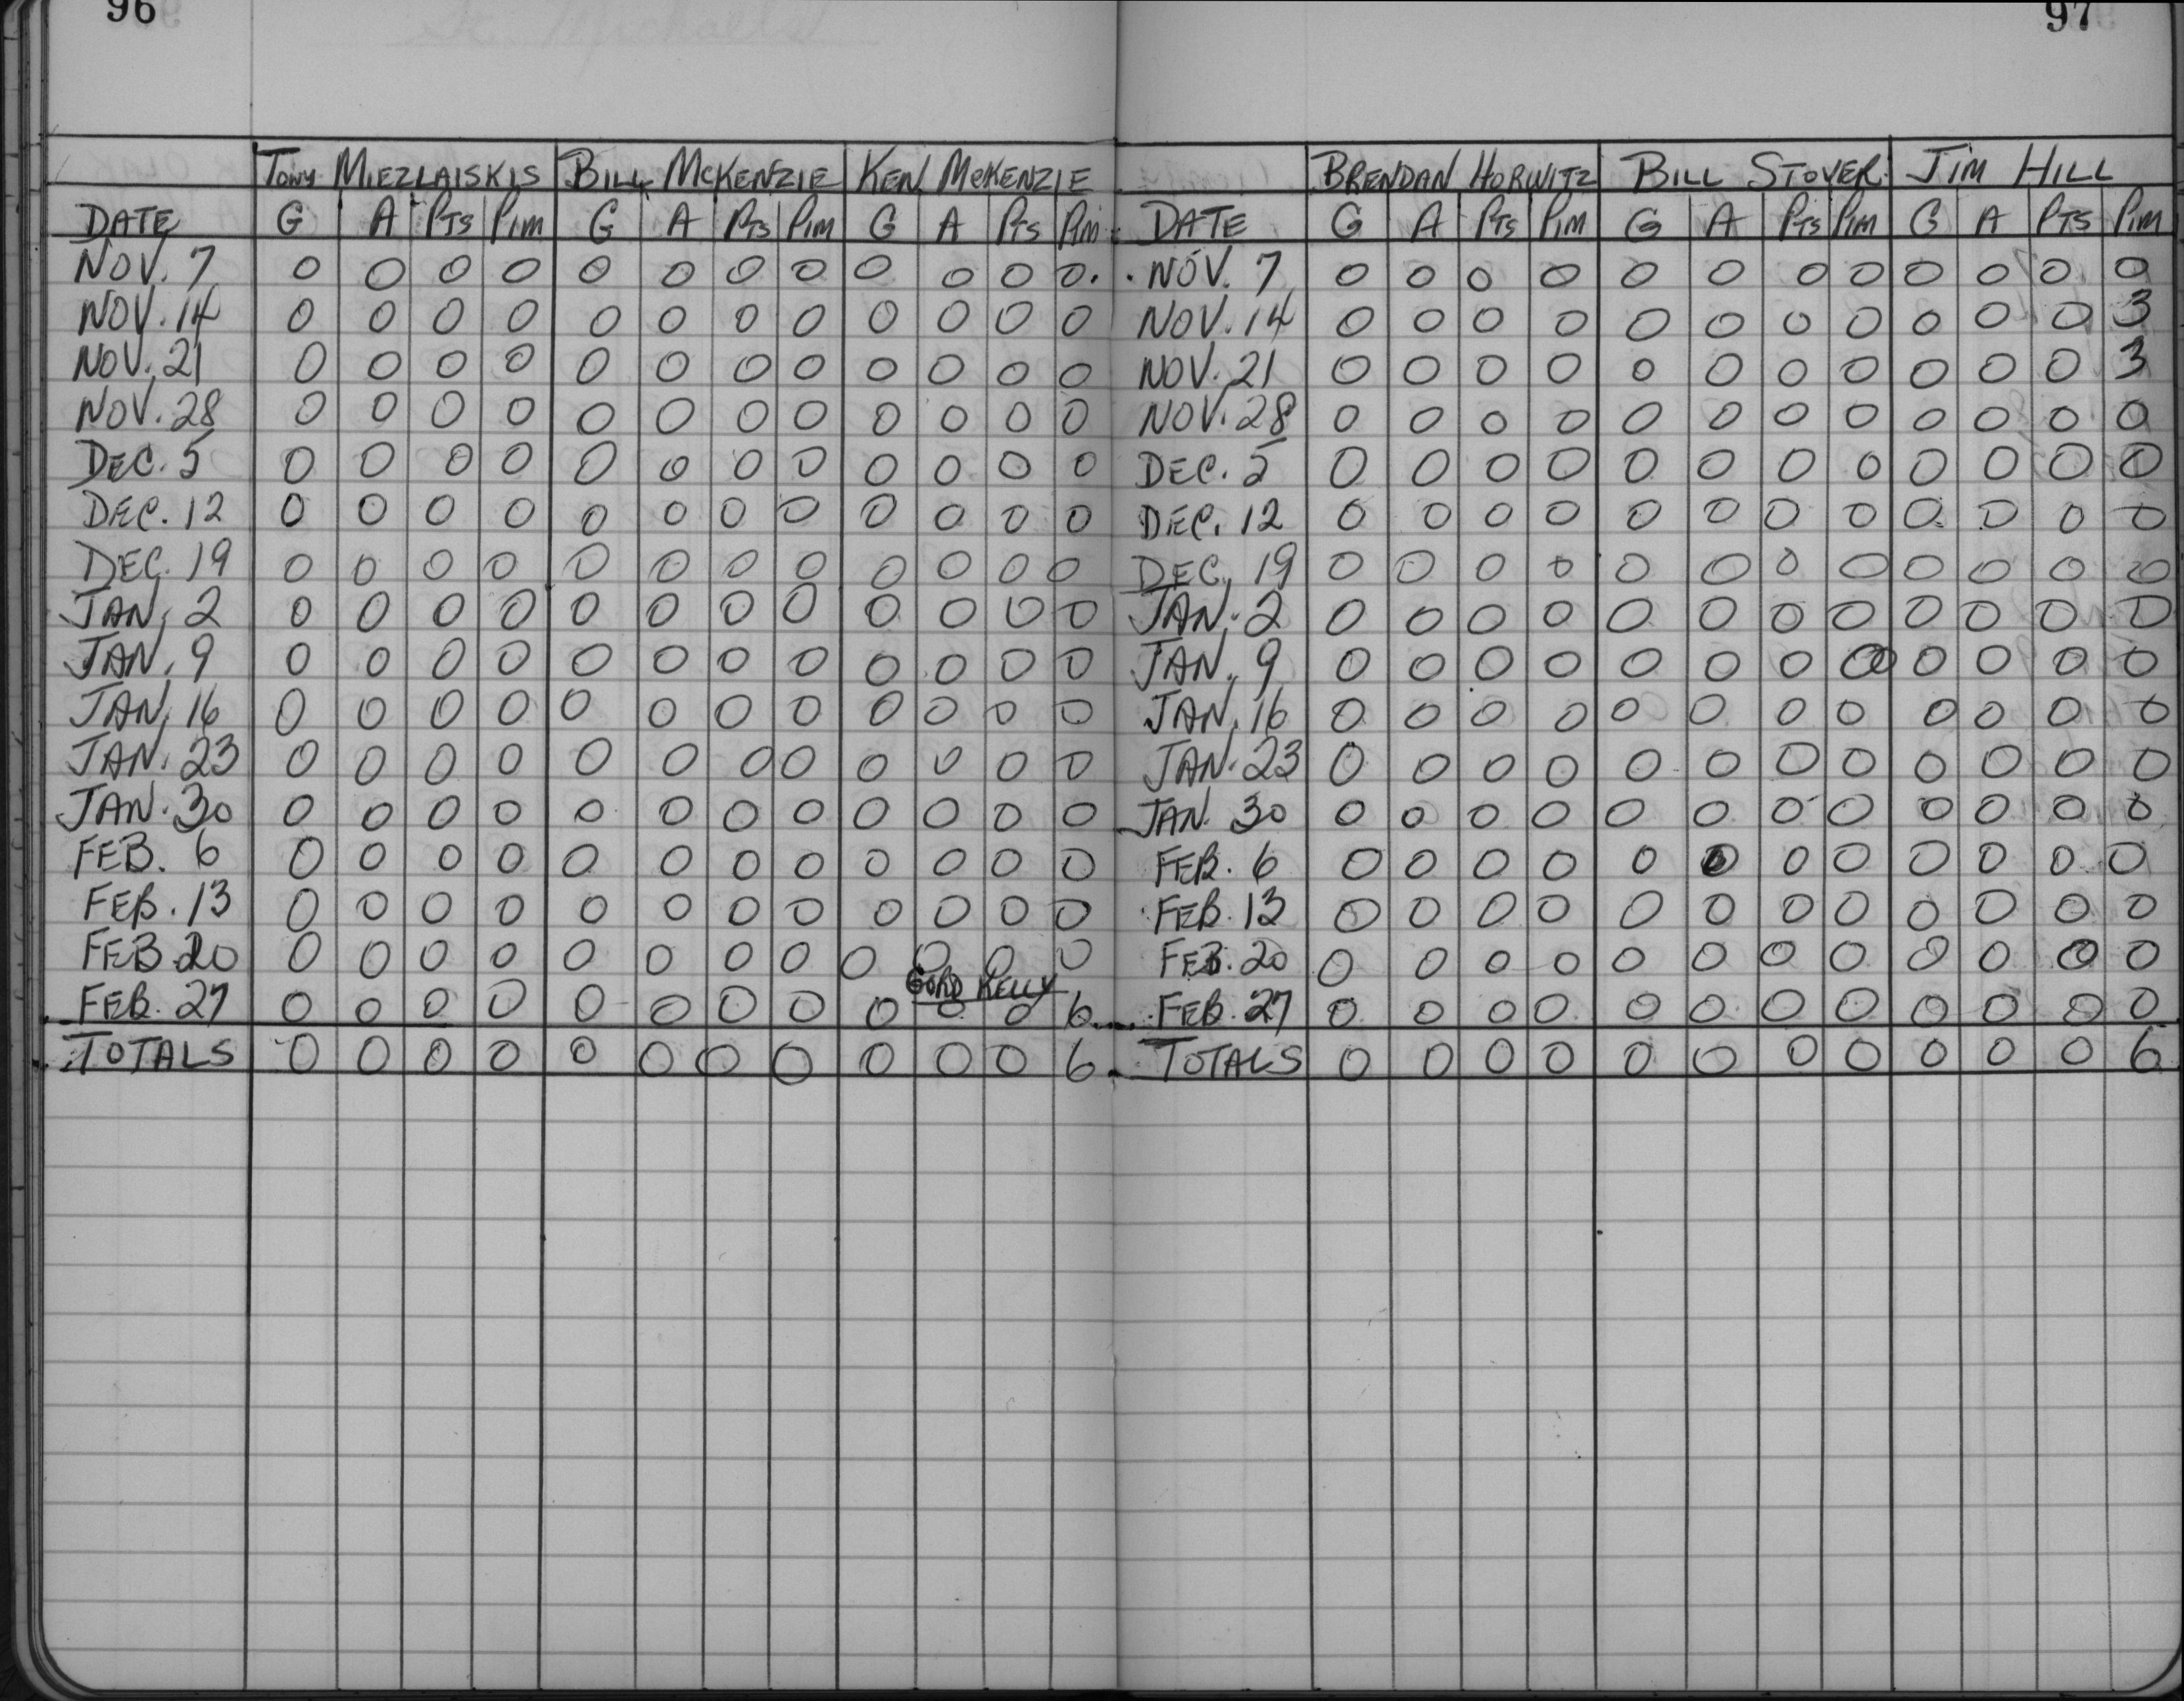 96
TONY MIEZLAISKIS BILL MCKENZIE KEN MCKENZIE
DATE G A PTS PIM G A PTS PIM G A PTS PIM
NOV. 7 0 0 0 0 0 0 0 0 0 0 0 0.
NOV. 14 0 0 0 0 0 0 0 0 0 0 0 0
NOV. 21 0 0 0 0 0 0 0 0 0 0 0 0
NOV. 28 0 0 0 0 0 0 0 0 0 0 0 0
DEC. 5 0 0 0 0 0 0 0 0 0 0 0 0
DEC. 12 0 0 0 0 0 0 0 0 0 0 0 0
DEC. 19 0 0 0 0 0 0 0 0 0 0 0 0
JAN. 2 0 0 0 0 0 0 0 0 0 0 0 0
JAN. 9 0 0 0 0 0 0 0 0 0 0 0 0
JAN. 16 0 0 0 0 0 0 0 0 0 0 0 0
JAN. 23 0 0 0 0 0 0 0 0 0 0 0 0
JAN. 30 0 0 0 0 0 0 0 0 0 0 0 0
FEB. 6 0 0 0 0 0 0 0 0 0 0 0 0
FEB. 13 0 0 0 0 0 0 0 0 0 0 0 0
FEB. 20 0 0 0 0 0 0 0 0 0 0 0 0
GORD KELLY
FEB. 27 0 0 0 0 0 0 0 0 0 0 0 6
TOTALS 0 0 0 0 0 0 0 0 0 0 0 6
97
BRENDAN HORWITZ BILL STOVER JIM HILL
DATE G A PTS PIM G A PTS PIM G A PTS PIM
NOV. 7 0 0 0 0 0 0 0 0 0 0 0 0
NOV. 14 0 0 0 0 0 0 0 0 0 0 0 3
NOV. 21 0 0 0 0 0 0 0 0 0 0 0 3
NOV. 28 0 0 0 0 0 0 0 0 0 0 0 0
DEC. 5 0 0 0 0 0 0 0 0 0 0 0 0
DEC. 12 0 0 0 0 0 0 0 0 0 0 0 0
DEC. 19 0 0 0 0 0 0 0 0 0 0 0 0
JAN. 2 0 0 0 0 0 0 0 0 0 0 0 0
JAN. 9 0 0 0 0 0 0 0 0 0 0 0 0
JAN. 16 0 0 0 0 0 0 0 0 0 0 0 0
JAN. 23 0 0 0 0 0 0 0 0 0 0 0 0
JAN. 30 0 0 0 0 0 0 0 0 0 0 0 0
FEB. 6 0 0 0 0 0 0 0 0 0 0 0 0
FEB. 13 0 0 0 0 0 0 0 0 0 0 0 0
FEB. 20 0 0 0 0 0 0 0 0 0 0 0 0
FEB. 27 0 0 0 0 0 0 0 0 0 0 0 0
TOTALS 0 0 0 0 0 0 0 0 0 0 0 6